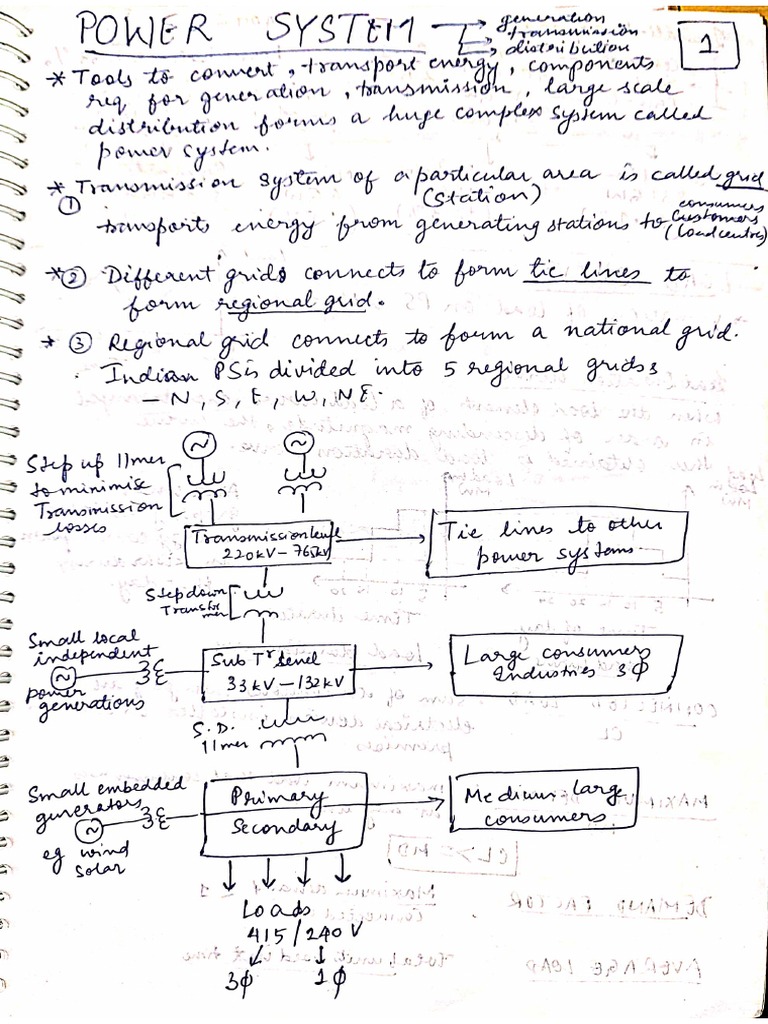 POWER SYSTEM → generation
→ transmission
→ distribution
1
* Tools to convert, transport energy, components
req for generation, transmission, large scale
distribution forms a huge complex system called
power system.
* Transmission system of a particular area is called grid
① (station)
transports energy from generating stations to customers
consumers
(load centres)
* ② Different grids connects to form tie lines to
form regional grid.
* ③ Regional grid connects to form a national grid.
Indian PS is divided into 5 regional grids
- N, S, E, W, NE.
Step up 11mer
to minimise
Transmission
losses
~
~
Transmission level
220kV - 765kV
Tie lines to other
power systems
Step down
Transfor
mer
Small local
independent
~
power
generations
Sub Tr level
33kV - 132kV
Large consumers
Industries 3Φ
S.D.
11mer
Small embedded
generators
~
eg wind
solar
Primary
Secondary
Medium large
consumers.
Loads
415/240V
3Φ 1Φ
CONNECTED LOAD
CL
MAXIMUM DEMAND
CL >= MD
DEMAND FACTOR
AVERAGE LOAD